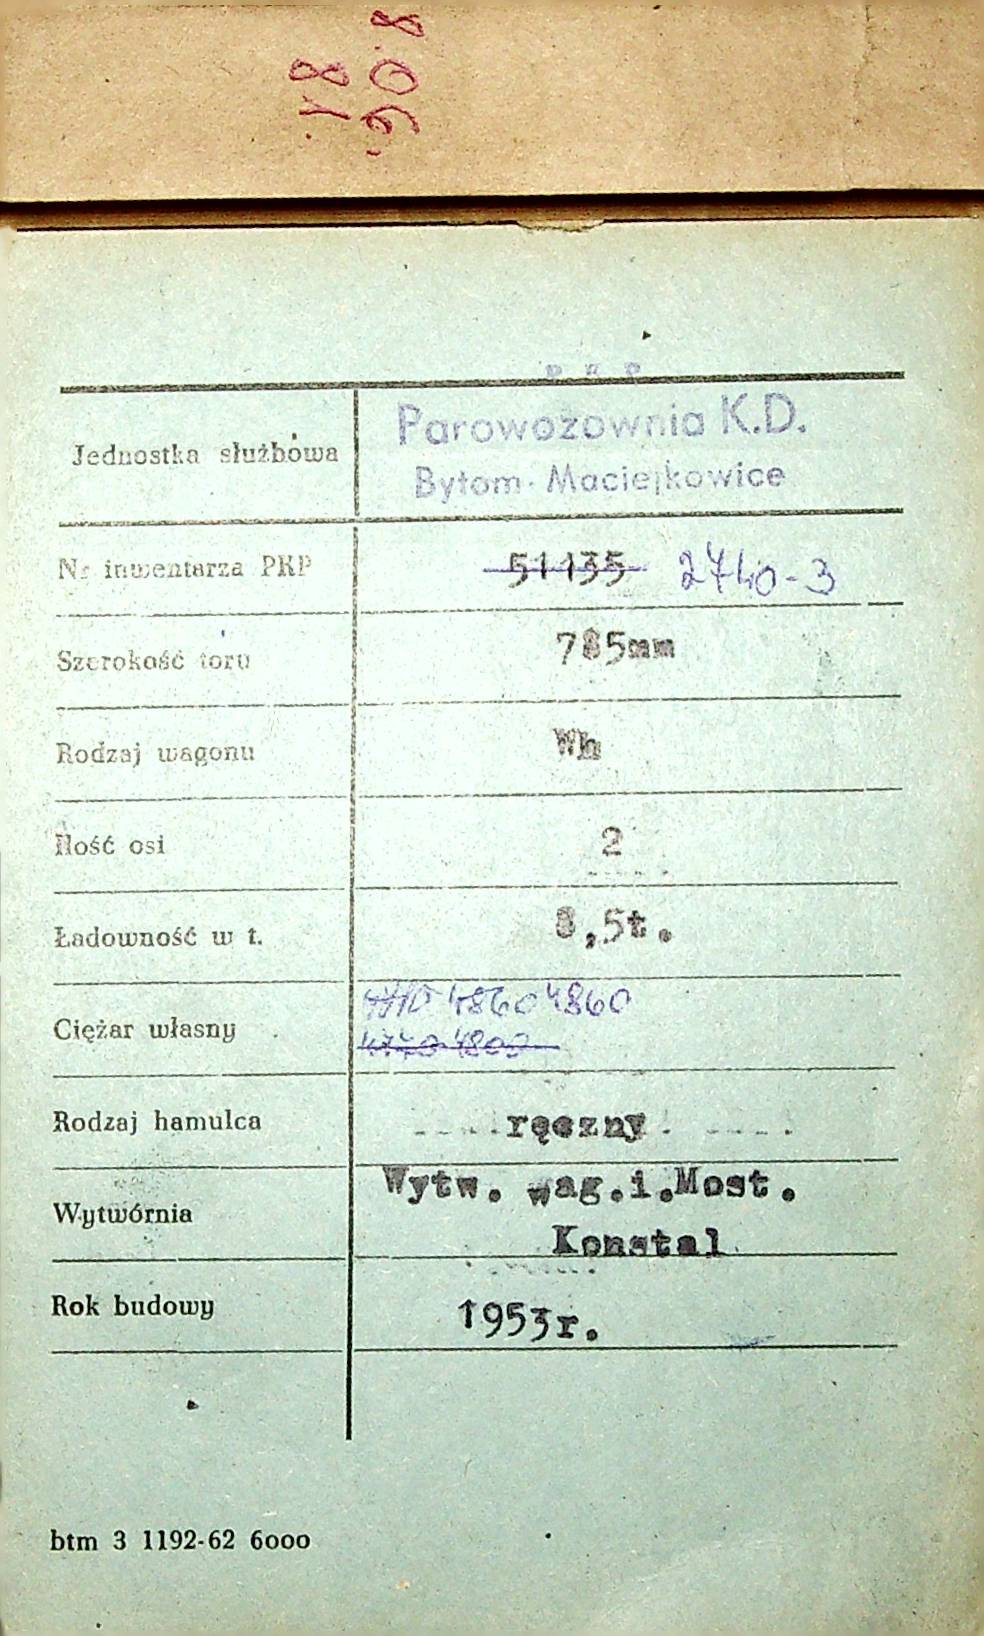 P K P
Jednostka służbowa
Parowozownia K.D.
Bytom-Maciejkowice
Nr inwentarza PKP
51135 2740-3
Szerokość toru
785mm
Rodzaj wagonu
Wh
Ilość osi
2
Ładowność w t.
8,5t.
Ciężar własny
4860 4860
4740 4800
Rodzaj hamulca
ręczny
Wytwórnia
Wytw. wag.i.Most.
Konstal
Rok budowy
1953r.
btm 3 1192-62 6000